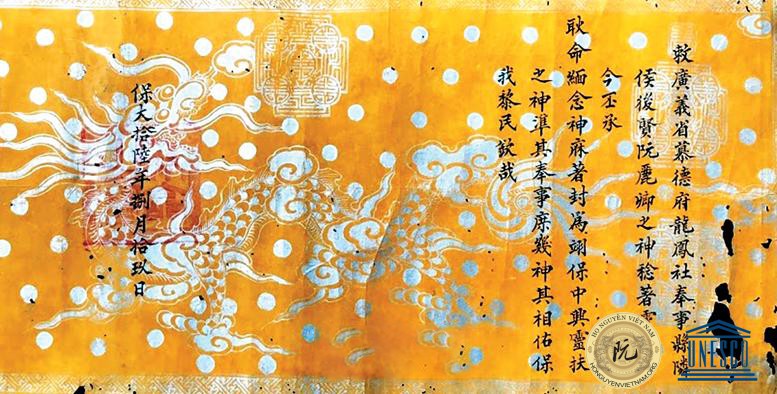 敕廣義省慕德府龍鳳社奉事將陵
侯後賢阮麗卿之神稔著
今丕承
耿命緬念神庥著封爲翊保中興靈扶
之神準其奉事庶幾神其相佑保
我黎民欽哉
保大拾陸年捌月拾玖日
HỌ NGUYỄN VIỆT NAM
阮
HONGUYENVIETNAM.ORG
UNESCO